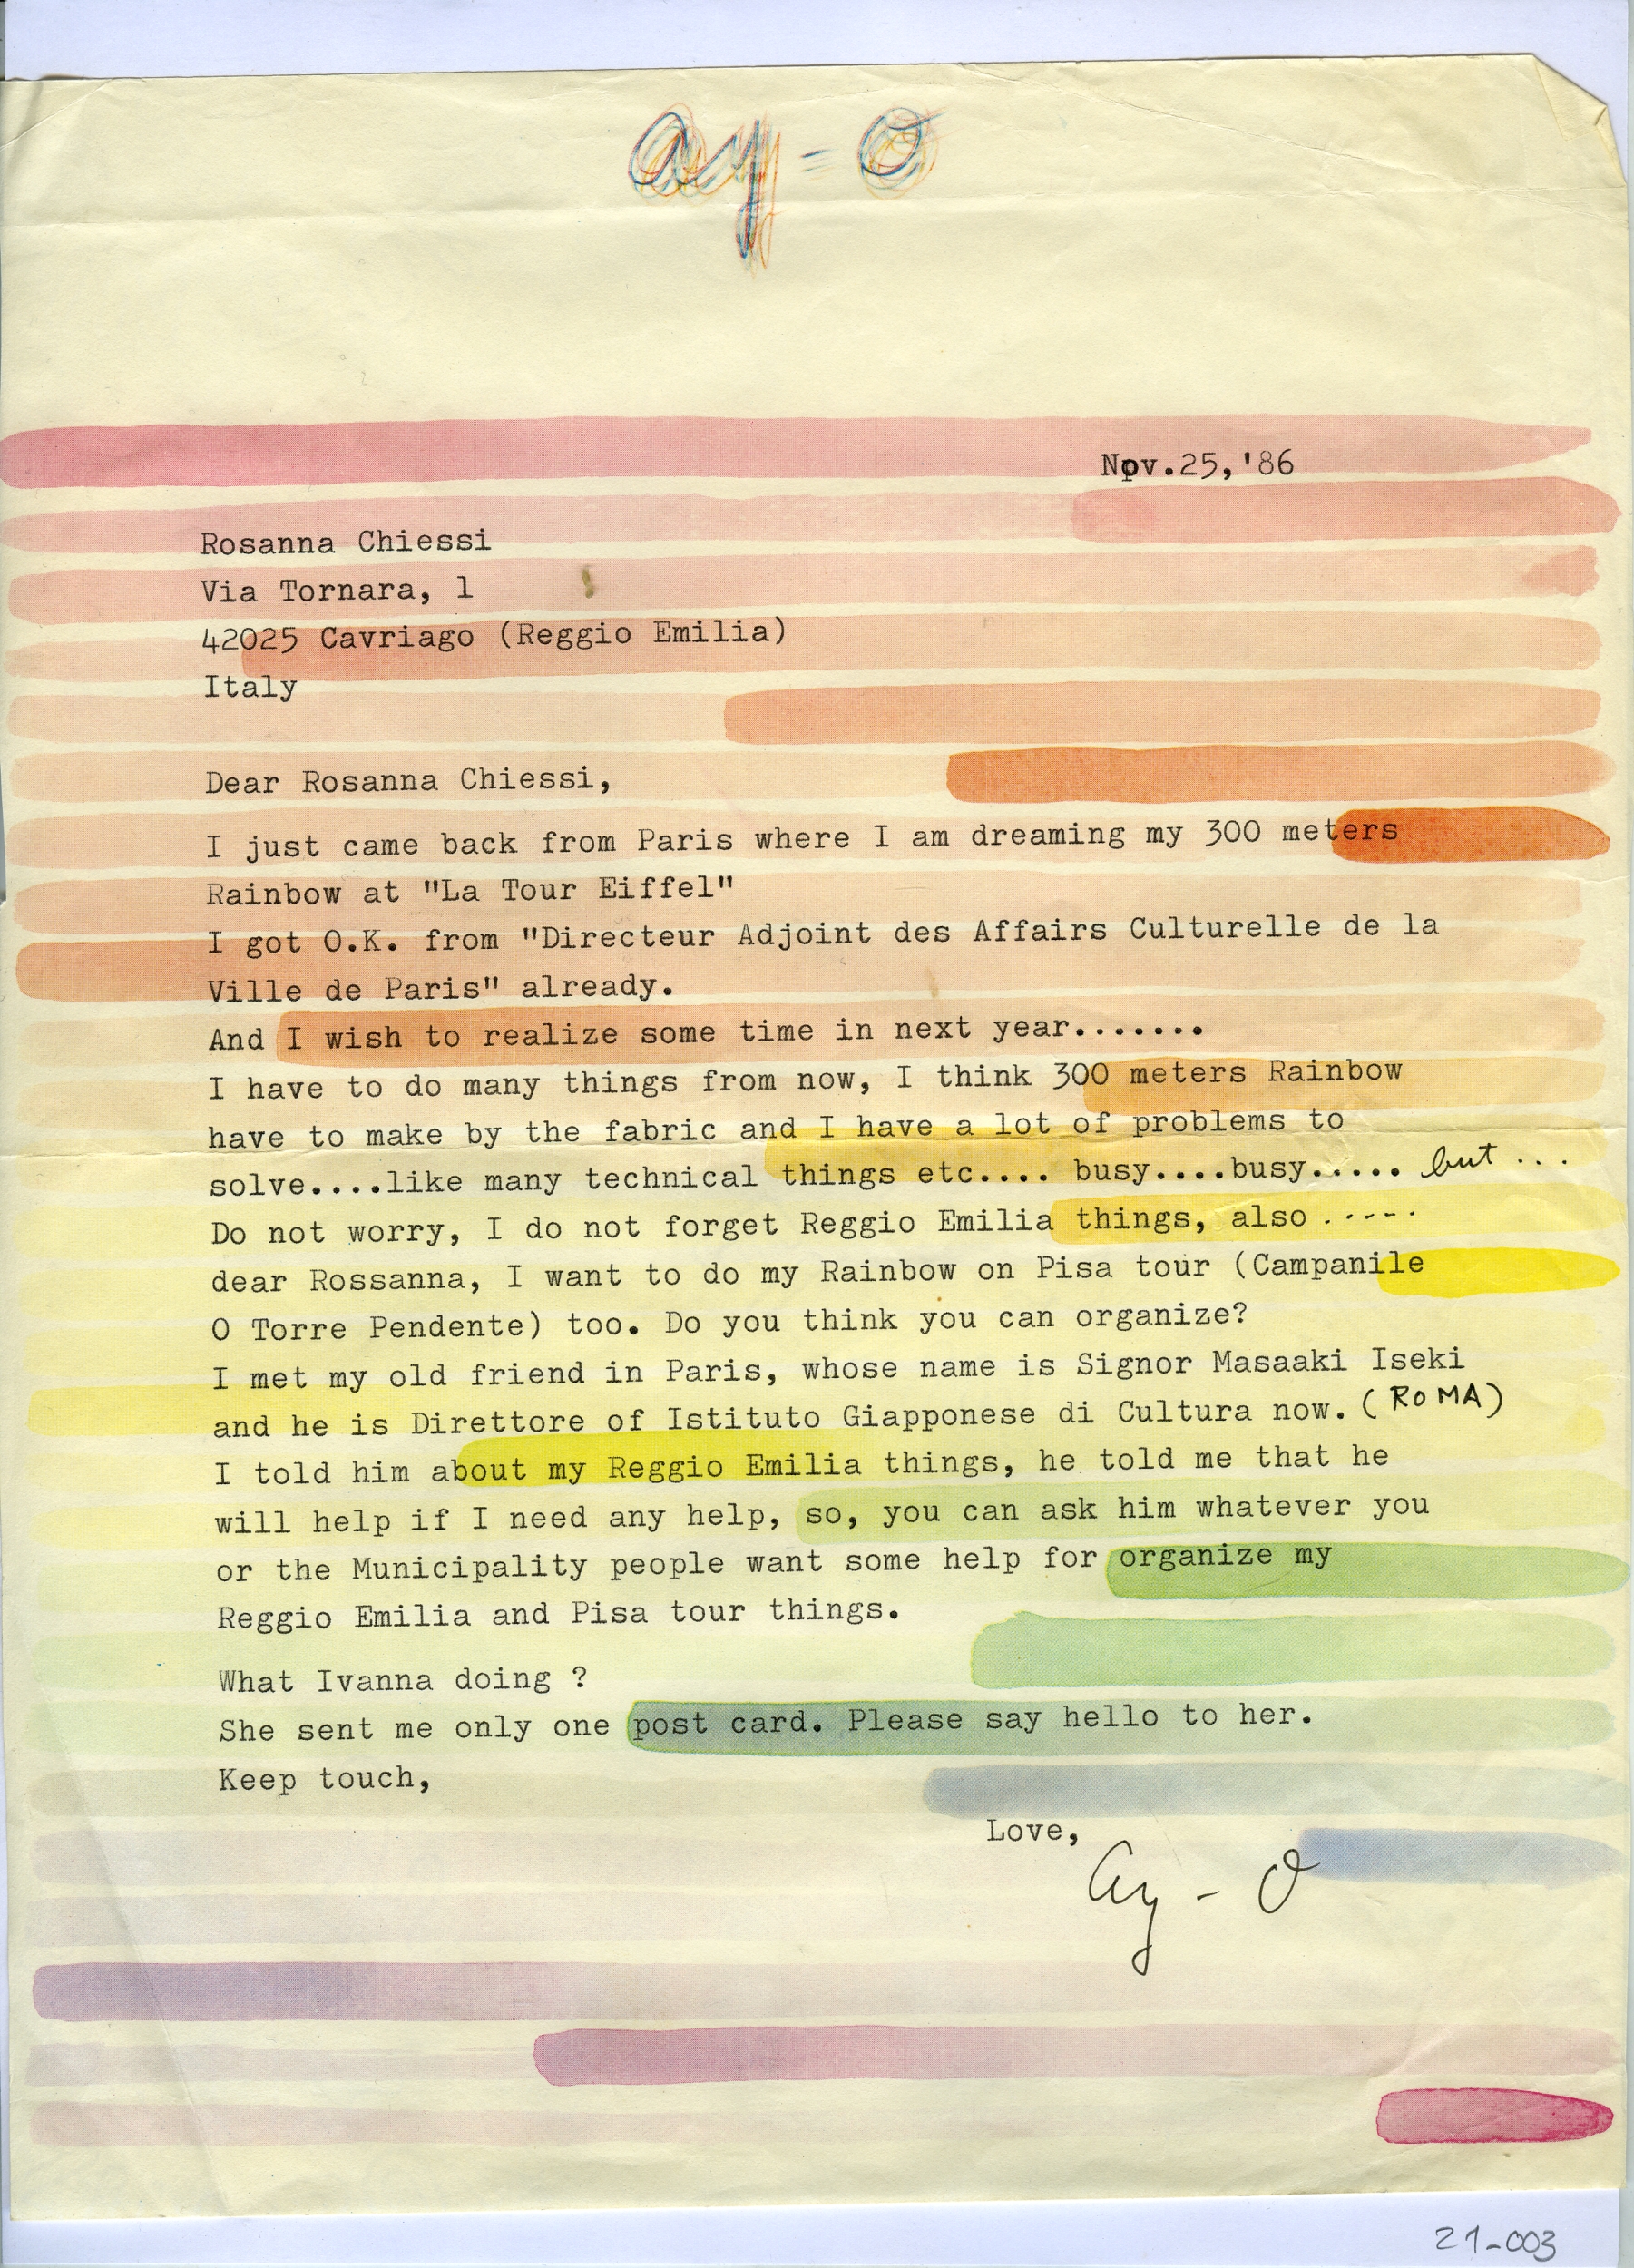 ay-o
Nov.25,'86
Rosanna Chiessi
Via Tornara, 1
42025 Cavriago (Reggio Emilia)
Italy
Dear Rosanna Chiessi,
I just came back from Paris where I am dreaming my 300 meters
Rainbow at "La Tour Eiffel"
I got O.K. from "Directeur Adjoint des Affairs Culturelle de la
Ville de Paris" already.
And I wish to realize some time in next year.......
I have to do many things from now, I think 300 meters Rainbow
have to make by the fabric and I have a lot of problems to
solve....like many technical things etc.... busy....busy..... but ...
Do not worry, I do not forget Reggio Emilia things, also .----
dear Rossanna, I want to do my Rainbow on Pisa tour (Campanile
O Torre Pendente) too. Do you think you can organize?
I met my old friend in Paris, whose name is Signor Masaaki Iseki
and he is Direttore of Istituto Giapponese di Cultura now. (ROMA)
I told him about my Reggio Emilia things, he told me that he
will help if I need any help, so, you can ask him whatever you
or the Municipality people want some help for organize my
Reggio Emilia and Pisa tour things.
What Ivanna doing ?
She sent me only one post card. Please say hello to her.
Keep touch,
Love,
Ay-O
21-003